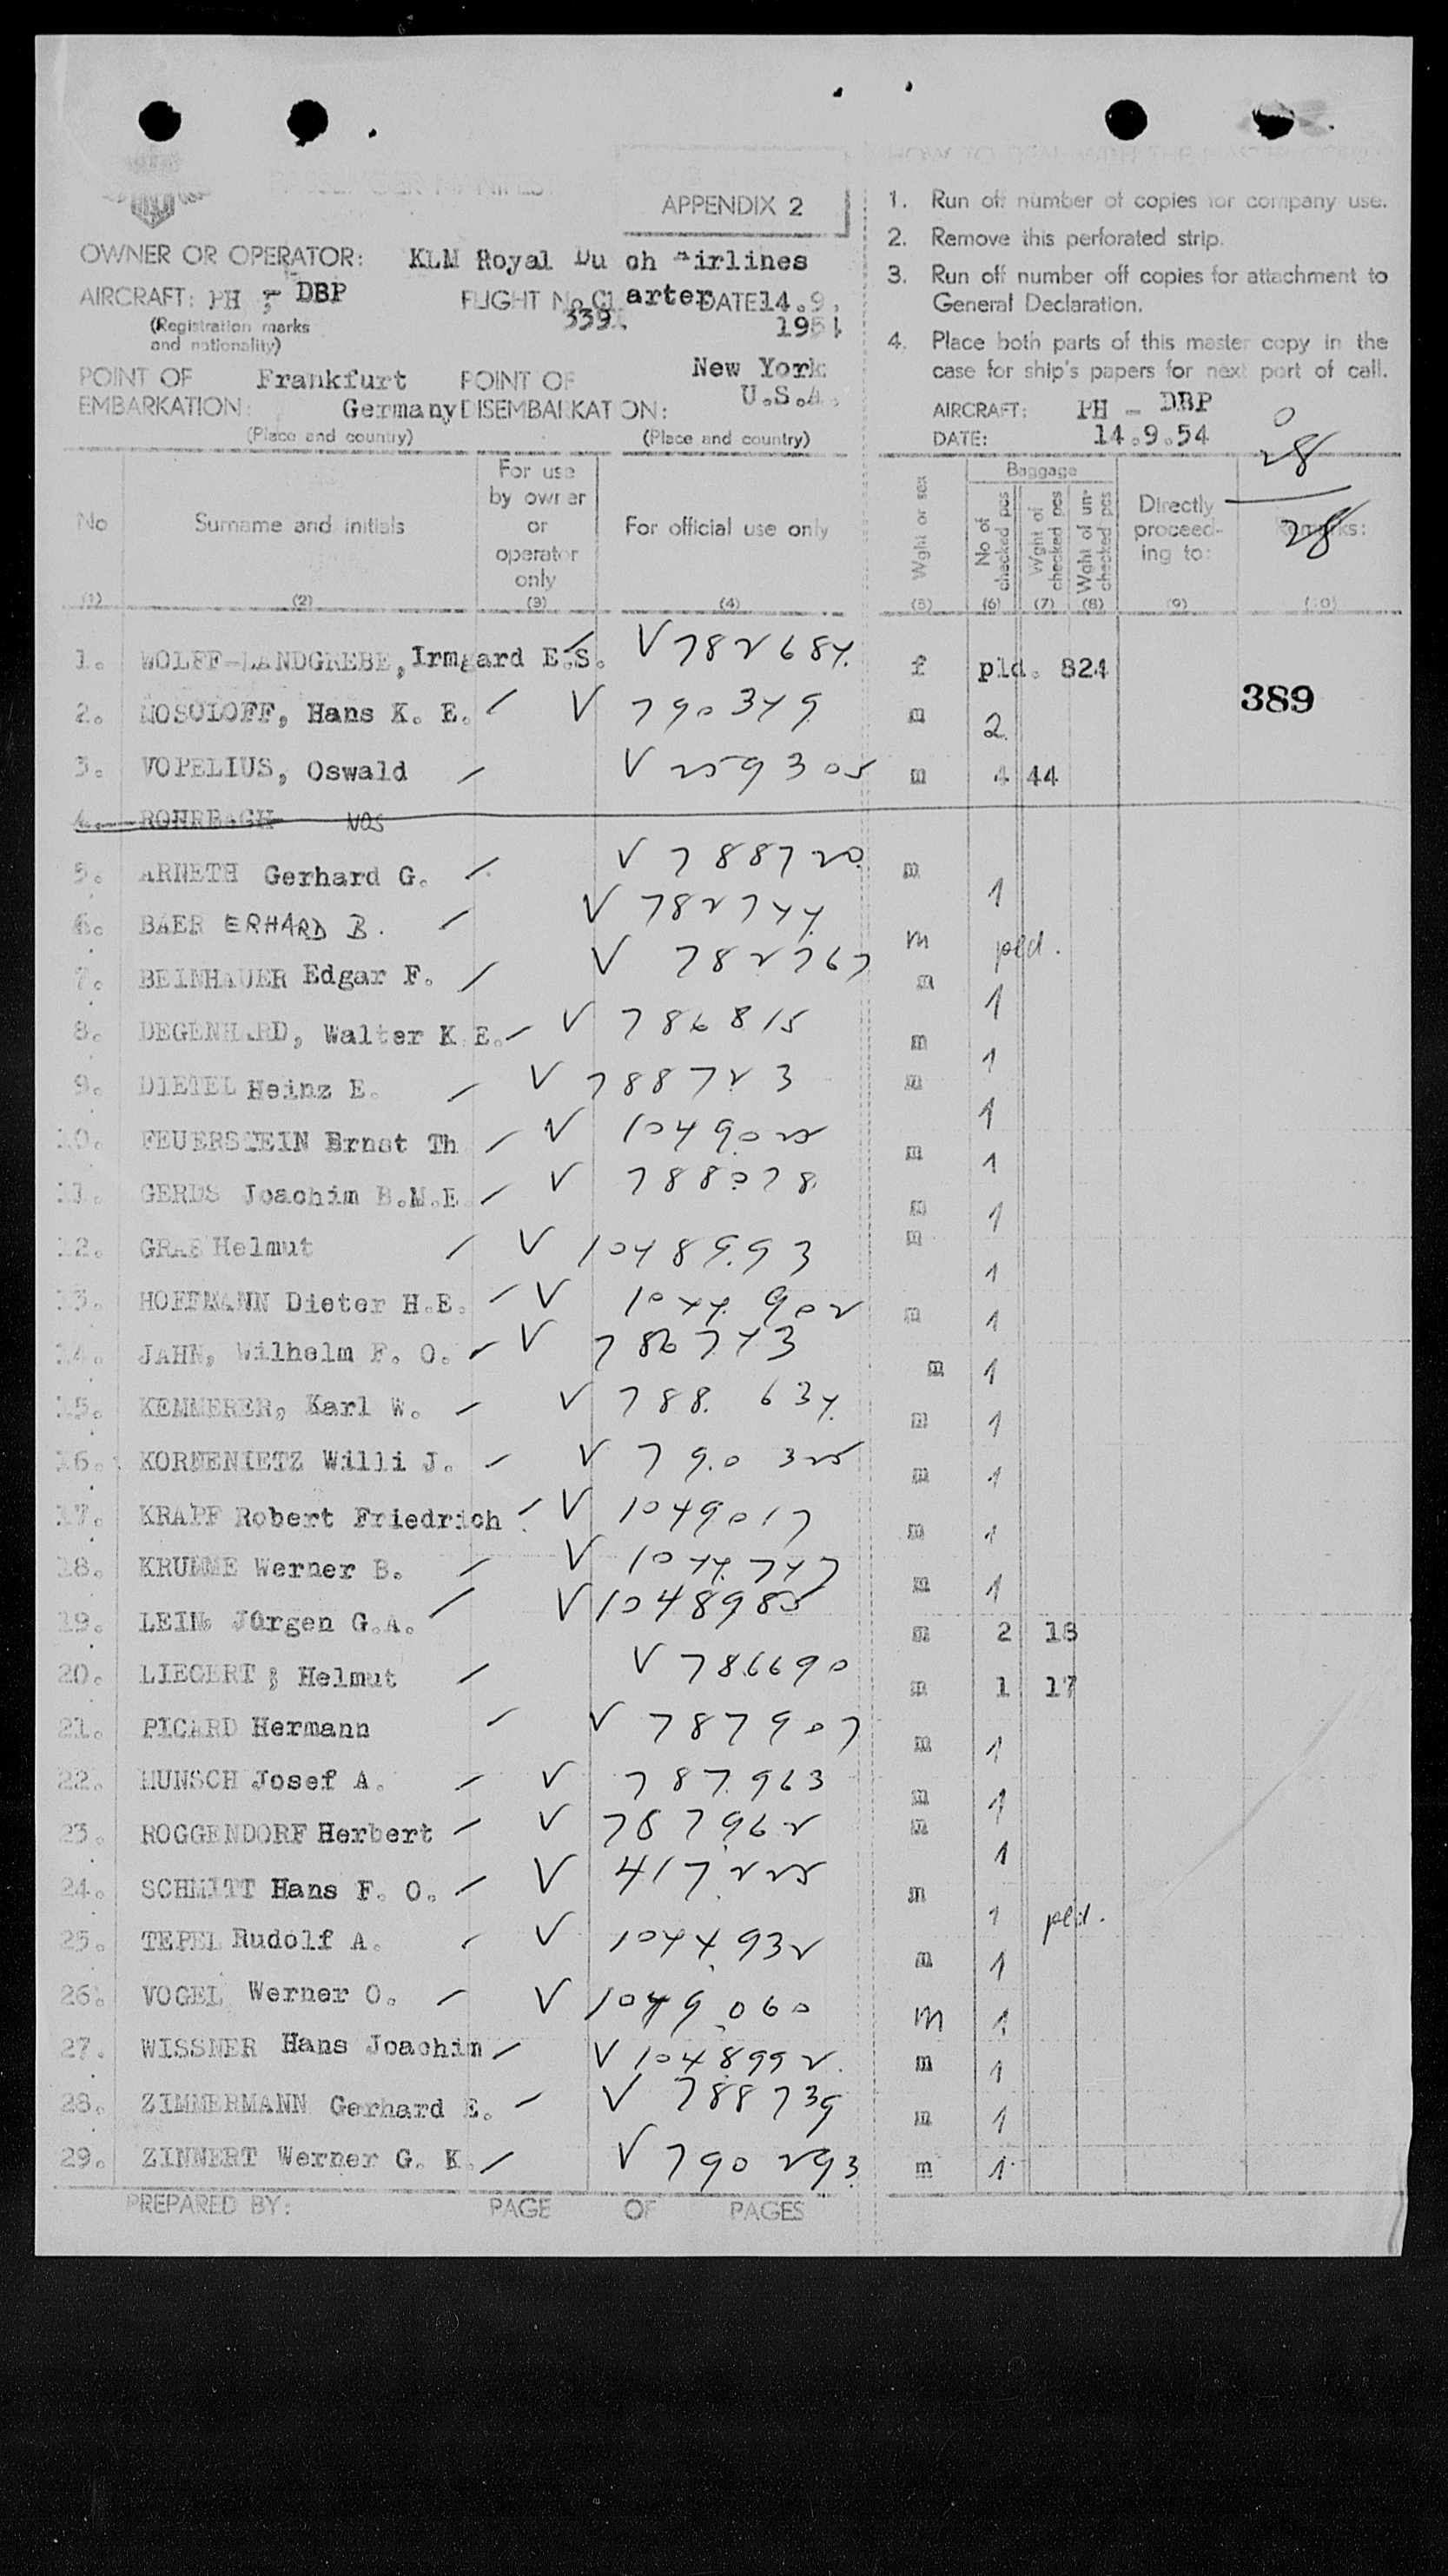 APPENDIX 2
OWNER OR OPERATOR: KLM Royal Du ch Airlines
AIRCRAFT: PH - DBP FLIGHT No. Ch arter DATE 14.9.
(Registration marks 339. 1954
and nationality)
POINT OF Frankfurt POINT OF New York
EMBARKATION: Germany DISEMBARKATION: U.S.A.
(Place and country) (Place and country)
1. Run off number of copies for company use.
2. Remove this perforated strip.
3. Run off number off copies for attachment to
General Declaration.
4. Place both parts of this master copy in the
case for ship's papers for next port of call.
AIRCRAFT: PH - DBP
DATE: 14.9.54
0
28
28
No Surname and initials For use by owner or operator only For official use only Wght or sex Baggage No of checked pcs Wght of checked pcs Wght of un-checked pcs Directly proceed-ing to: Remarks:
(1) (2) (3) (4) (5) (6) (7) (8) (9) (10)
1. WOLFF-LANDGREBE, Irmgard E.S. V 782684 f pld. 824
389
2. MOSOLOFF, Hans K. E. V 790349 m 2
3. VOPELIUS, Oswald V 259305 m 4 44
4. ROHRBACH NOS
5. ARNETH Gerhard G. V 788720 m 1
6. BAER ERHARD B. V 782744 m pld.
7. BEINHAUER Edgar F. V 782767 m 1
8. DEGENHARD, Walter K.E. V 786815 m 1
9. DIETEL Heinz E. V 788723 m 1
10. FEUERSTEIN Ernst Th V 1049025 m 1
11. GERDS Joachim B.M.E. V 788078 m 1
12. GRAS Helmut V 1048993 m 1
13. HOFFMANN Dieter H.E. V 1044902 m 1
14. JAHN, Wilhelm F. O. V 786743 m 1
15. KEMMERER, Karl W. V 788634 m 1
16. KORNENIETZ Willi J. V 790325 m 1
17. KRAPF Robert Friedrich V 1049017 m 1
18. KRUMME Werner B. V 1044747 m 1
19. LEIN, Jürgen G.A. V 1048985 m 2 18
20. LIEGERT ; Helmut V 786690 m 1 17
21. PICARD Hermann V 787907 m 1
22. MUNSCH Josef A. V 787963 m 1
23. ROGGENDORF Herbert V 787962 m 1
24. SCHMITT Hans F. O. V 417225 m 1 pld.
25. TEPEL Rudolf A. V 1044932 m 1
26. VOGEL Werner O. V 1049060 m 1
27. WISSNER Hans Joachim V 1048992 m 1
28. ZIMMERMANN Gerhard E. V 788739 m 1
29. ZINNERT Werner G. K. V 790293 m 1
PREPARED BY: PAGE OF PAGES